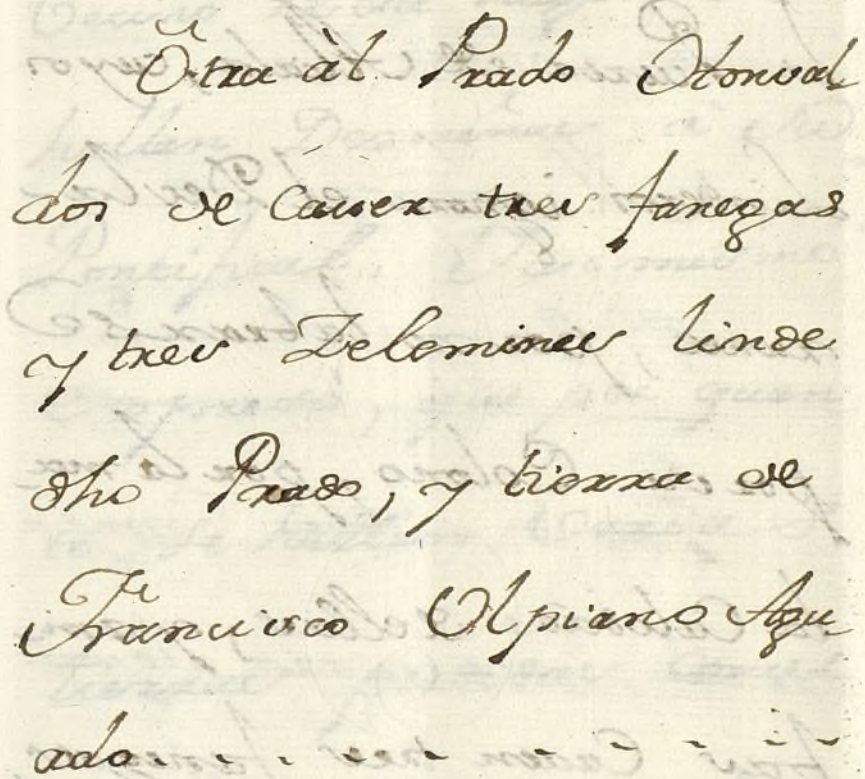 Otra àl Prado Otorual
dos de Caver tres fanegas
y tres Zelemines linde
dho Prado, y tierra de
Francisco Olpiano Agu
ado